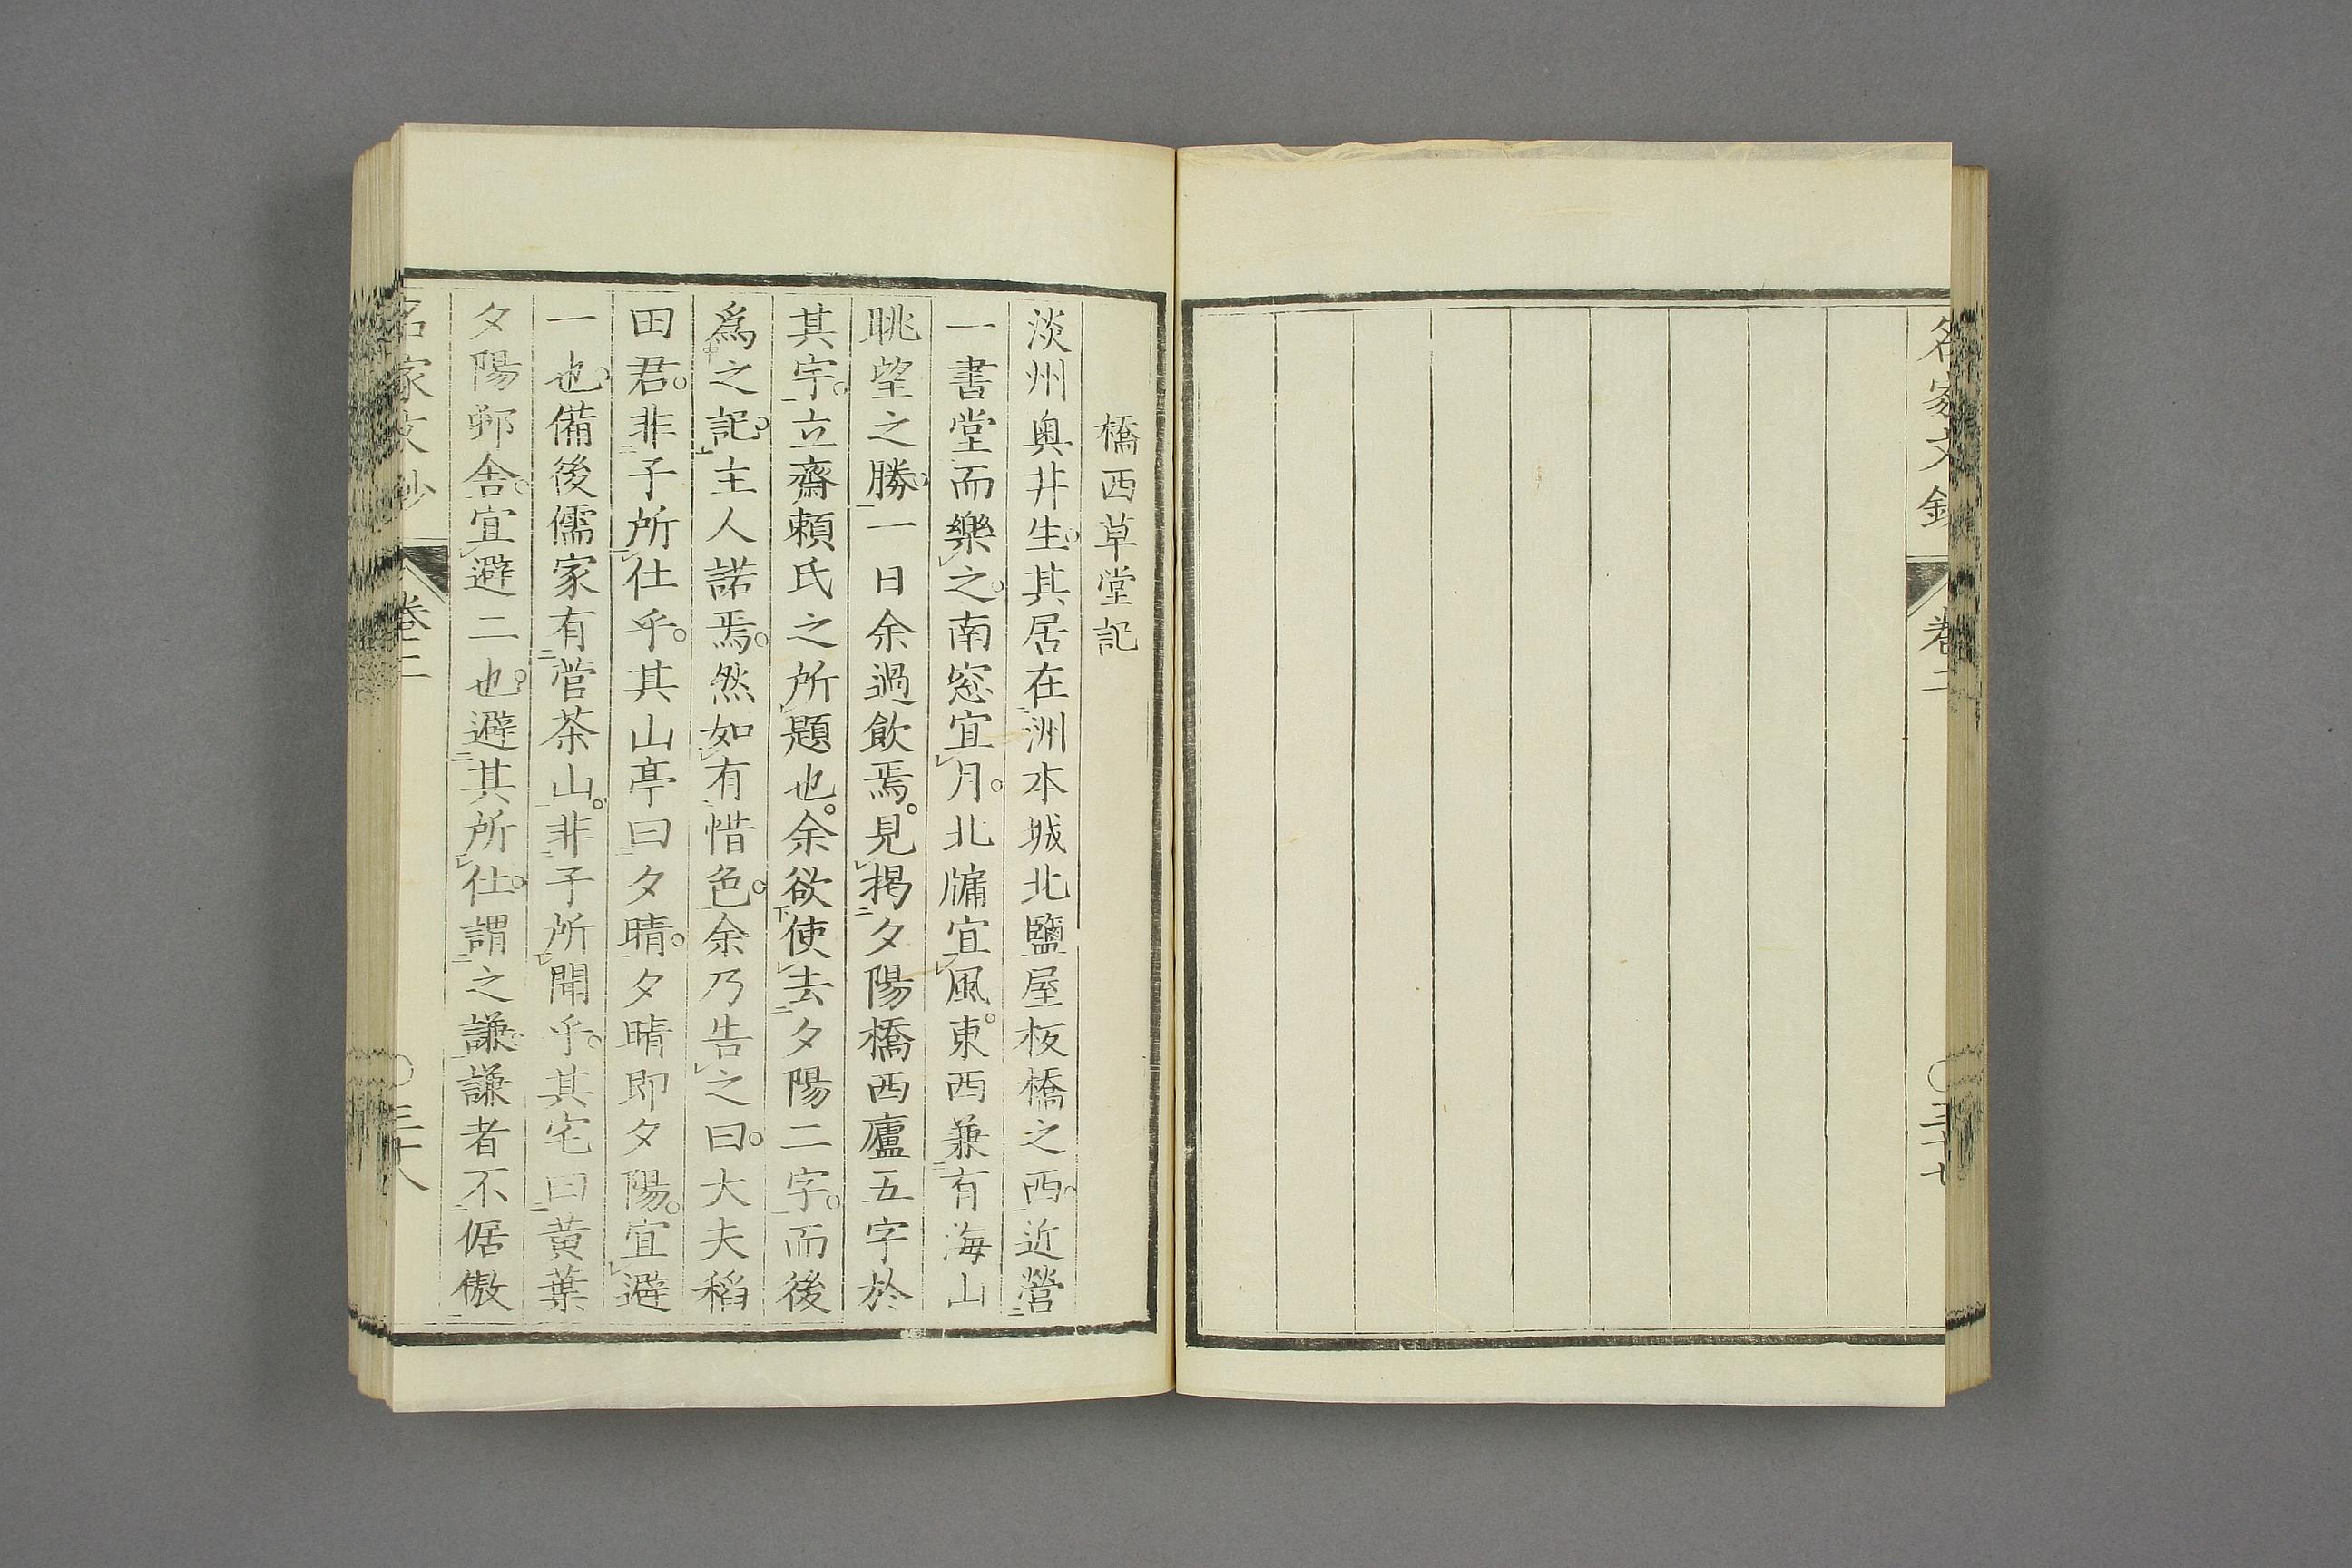 名家文鈔 卷二 ○三十七
橋西草堂記
淡州奥井生。其居在洲本城北鹽屋板橋之西。近營
一書堂而樂之。南窓宜月。北牖宜風。東西兼有海山
眺望之勝。一日余過飲焉。見揭夕陽橋西廬五字於
其宇。立齋賴氏之所題也。余欲使去夕陽二字。而後
爲之記。主人諾焉。然如有惜色。余乃告之曰。大夫稻
田君。非子所仕乎。其山亭曰夕晴。夕晴即夕陽。宜避
一也。備後儒家有菅茶山。非子所聞乎。其宅曰黃葉
夕陽邨舍。宜避二也。避其所仕。謂之謙。謙者不倨傲
名家文鈔 卷二 ○三十八